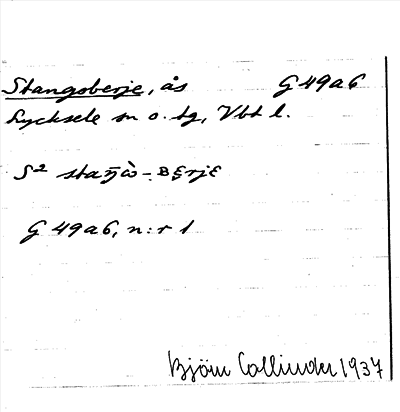 Stangoberje, ås G 49 a 6
Lycksele sn o. tg, Vbt l.
S² staŋ̄ὼ - Bęrjɛ
G 49 a 6, n:r 1
Björn Collinder 1937